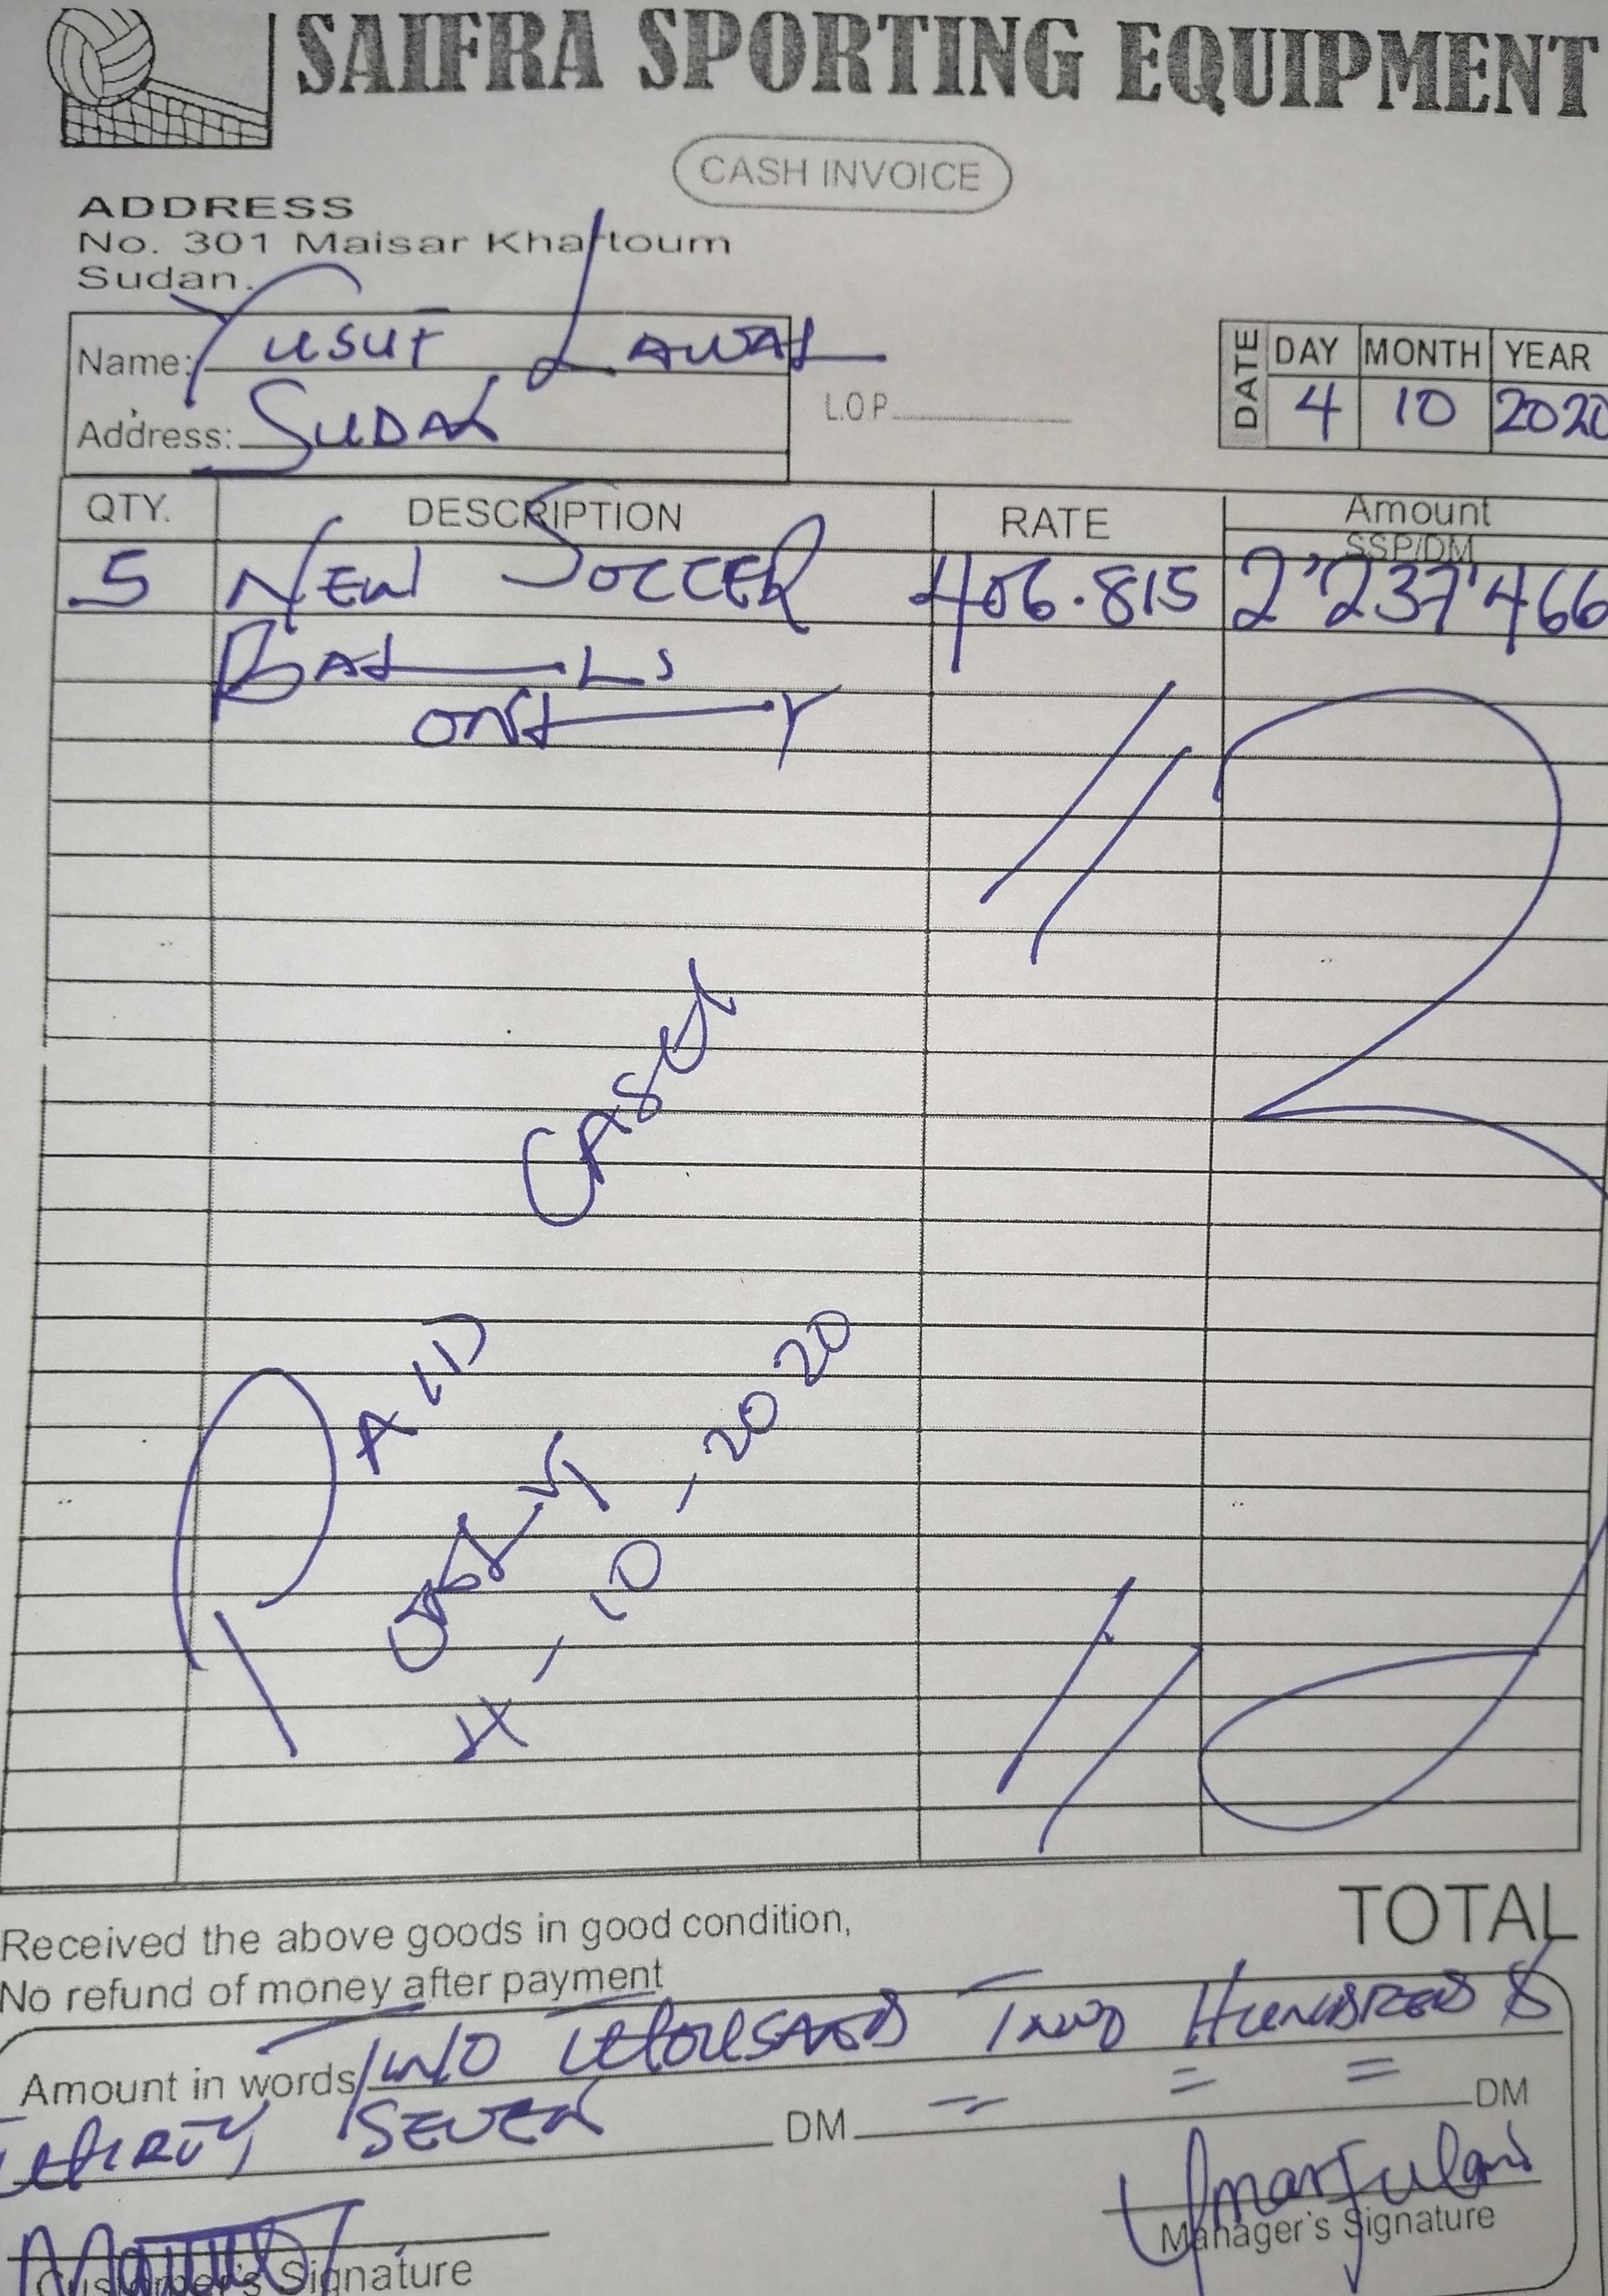 SAIFRA SPORTING EQUIPMENT
CASH INVOICE
ADDRESS
No. 301 Maisar Khartoum
Sudan.
Name: Yusuf Lawal
Address: Sudan
L.O.P
DATE DAY MONTH YEAR
4 10 2020
QTY. DESCRIPTION RATE Amount
SSP/DM
5 New Soccer 406.815 2'237'466
Balls
only
Cash
PAID
4-10-2020
TOTAL
Received the above goods in good condition,
No refund of money after payment
Amount in words Two thousand Two Hundred &
thirty seven DM = = = DM
Manager's Signature
Customer's Signature